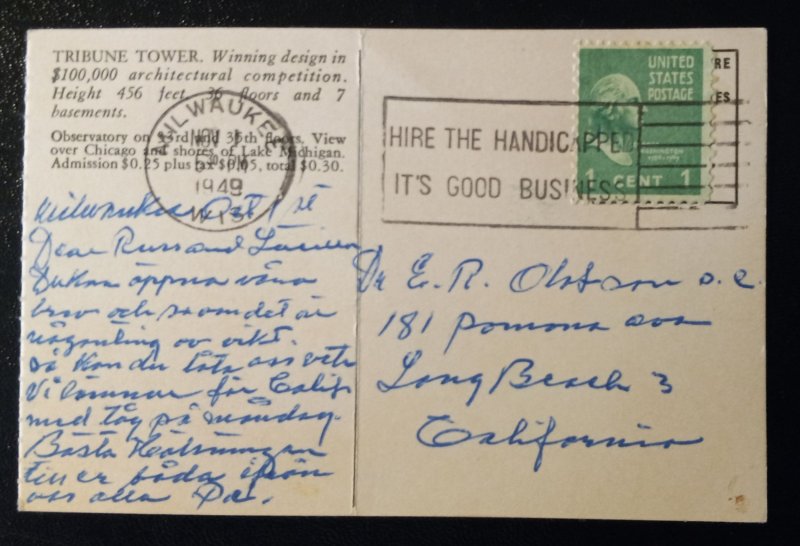 TRIBUNE TOWER. Winning design in
$100,000 architectural competition.
Height 456 feet, 36 floors and 7
basements.
Observatory on 33rd and 35th floors. View
over Chicago and shores of Lake Michigan.
Admission $0.25 plus tax $0.05, total $0.30.
MILWAUKEE
PM
1949
WIS.
HIRE THE HANDICAPPED
IT'S GOOD BUSINESS
UNITED
STATES
POSTAGE
WASHINGTON
1 CENT 1
Milwaukee Oct 1st
Dear Russ and
du kan öppna våra
brev och se om det är
någonting av vikt.
så kan du låta oss veta
Vi lämnar för Calif.
med tåg på måndag.
Bästa Hälsningar
till er båda ifrån
oss alla Pa.
Dr E. R. D.C.
181 Pomona ave
Long Beach 3
California